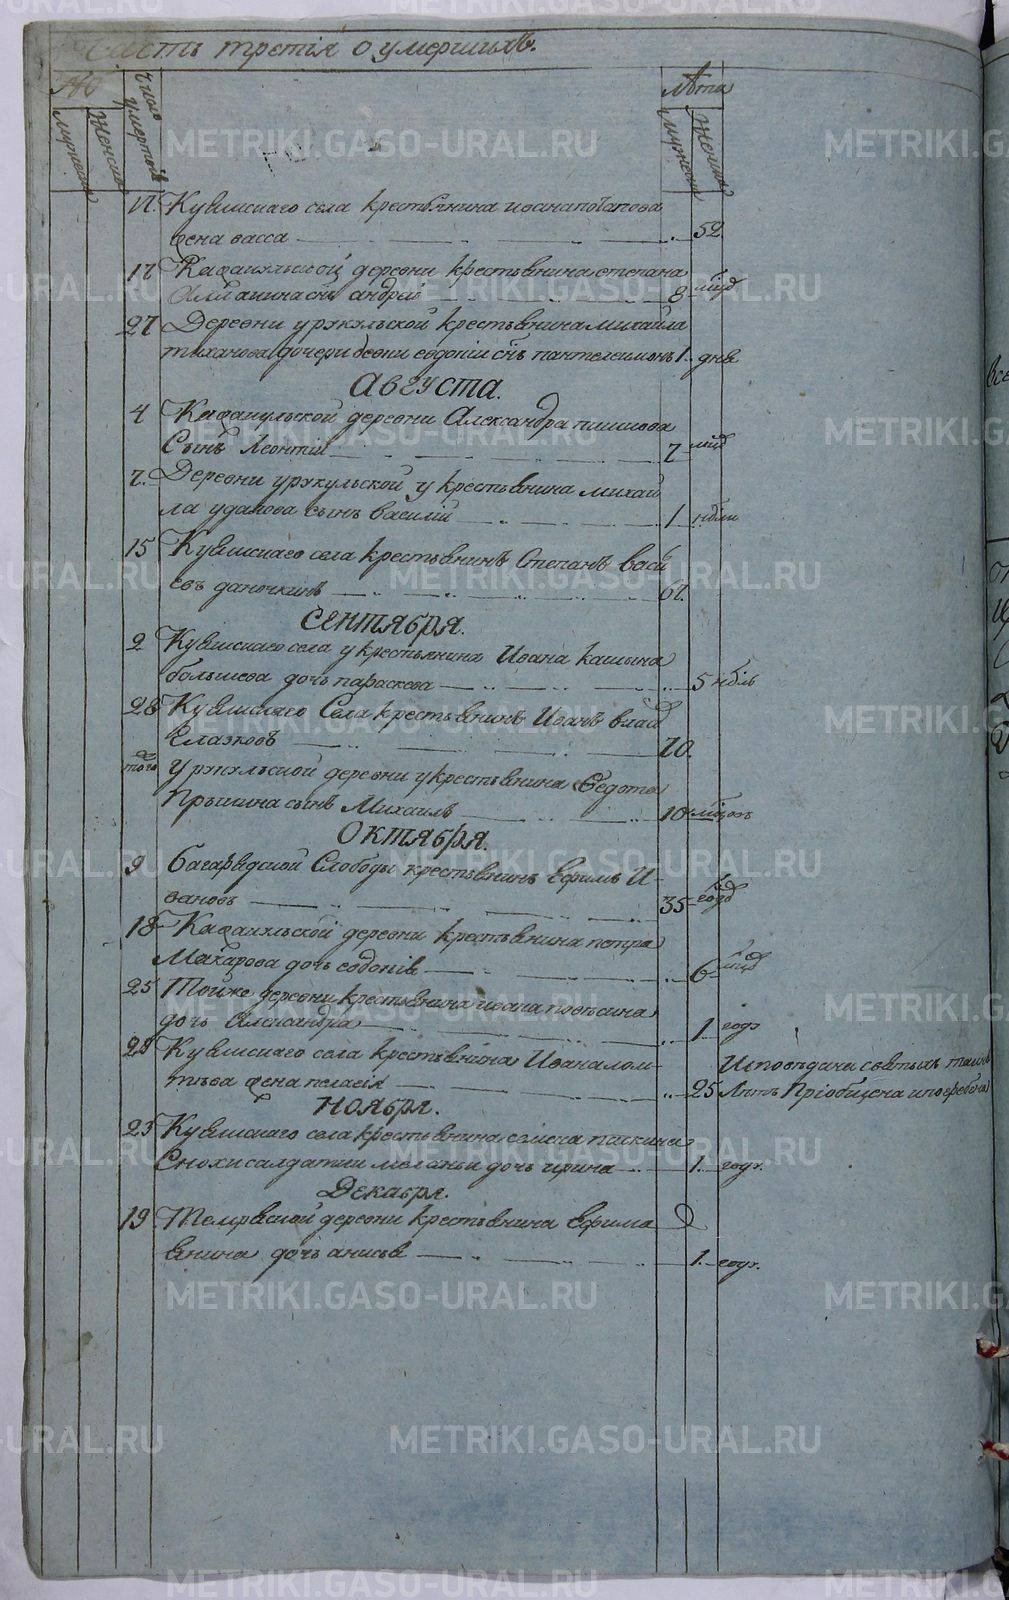 Часть третiя о умершихъ.
No
число умертвiя
Лѣта
мужеска
женска
мужеска
женска
17. Куяшскаго села крестьянина ивана потапова
жена васса 52
17 деревни крестьянина степана
снъ андрей 8 мцд
27 Деревни урукульской крестьянина михайла
тиханова дочери евдокiи снъ пантелеимонъ 1. дня
Августа.
4 деревни Александра
Сынъ Леонтiй 7 мцд
7. Деревни урукульской у крестьянина михай
ла сынъ василiй 1 нбли
15 Куяшскаго села крестьянинъ Степанъ васи
евъ даночкинъ 67.
Сентября.
2 Куяшскаго села у крестьянина Ивана кашина
большева дочь параскева 5 нблъ
28 Куяшскаго Села крестьянинъ Иванъ
Глазковъ 70.
того
Урукульской деревни у крестьянина Федота
сынъ Михаилъ 10 мцовъ
Октября.
9 багарядской Слободы крестьянинъ Ефимъ И-
вановъ 35 годд
18 деревни крестьянина петра
Макарова дочь евдокiя 6 мцд
25 Тойже деревни крестьянина ивана
дочь Александра 1 годъ
28 Куяшскаго села крестьянина Ивана лом-
тѣва жена пелагiя 25 Лѣтъ
Исповѣдана святыхъ таинъ
Прiобщена и погребена
Ноября.
23 Куяшскаго села крестьянина
Снохи салдатки меланьи дочь ирина 1. годъ.
Декабря.
19. деревни крестьянина Ефима
дочь анисья 1. годъ.
METRIKI.GASO-URAL.RU